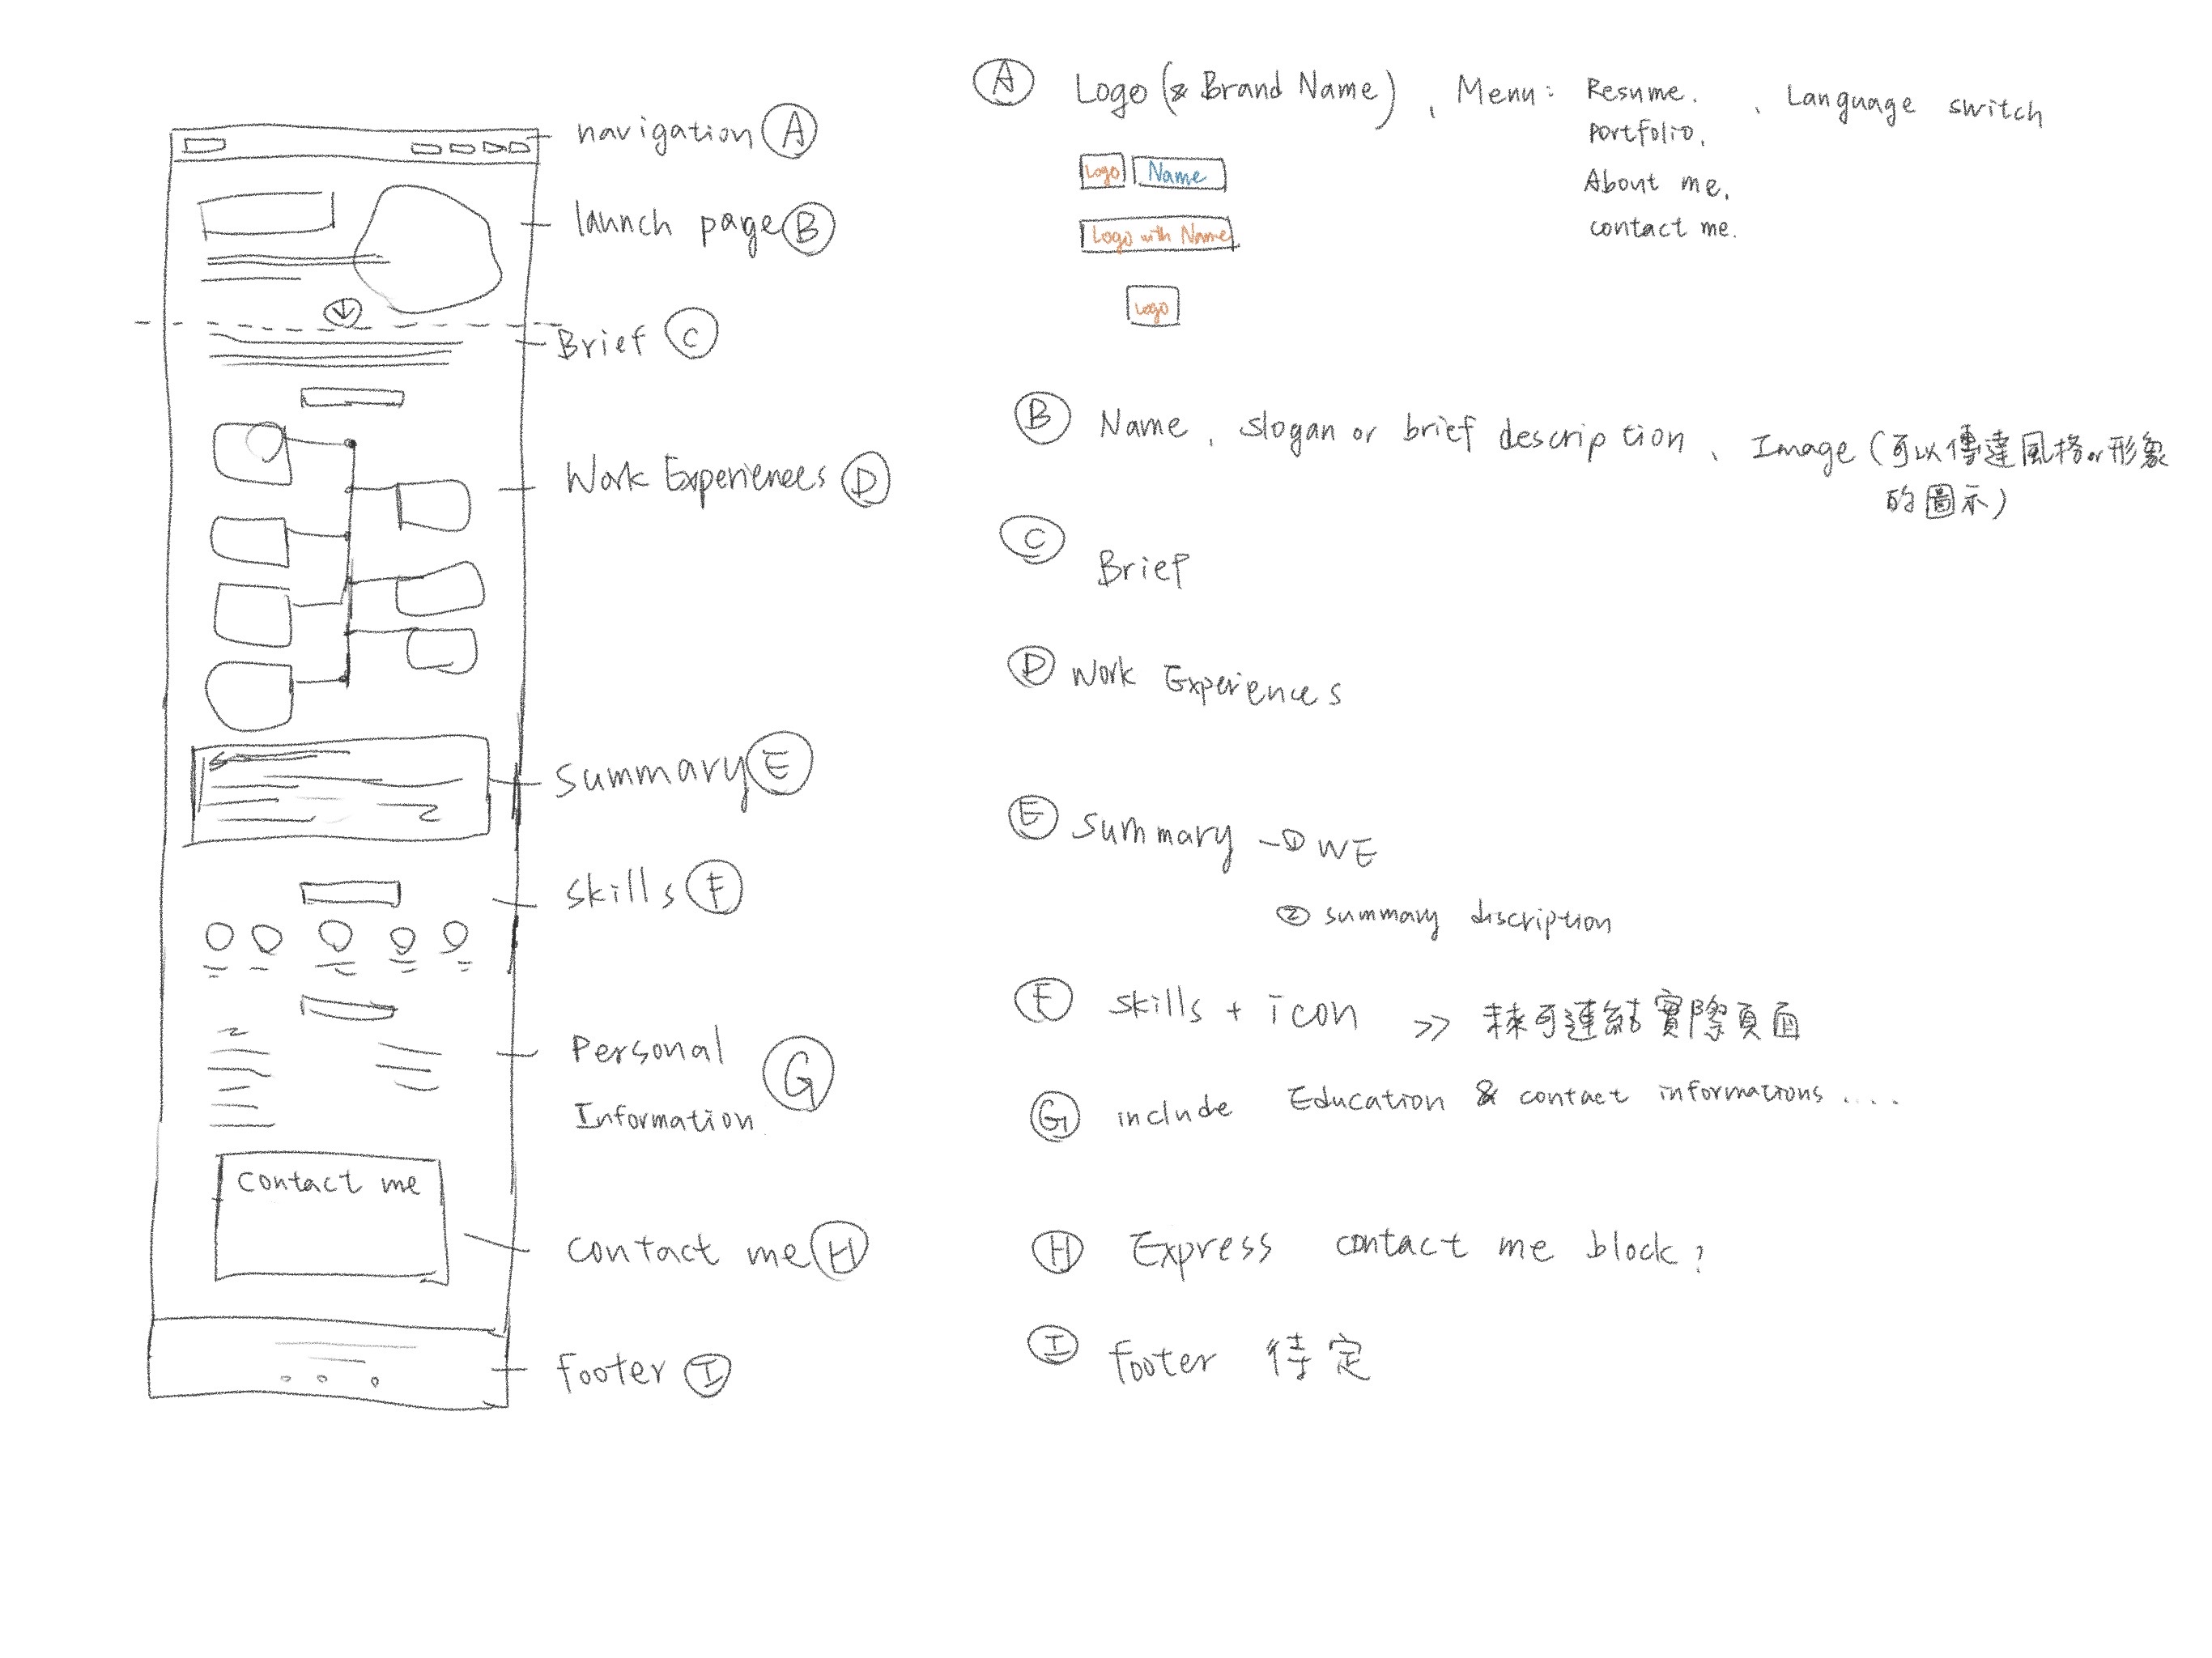 navigation A
launch page B
Brief C
Work Experiences D
Summary E
Skills F
Personal
Information G
contact me
contact me H
footer I
A Logo (& Brand Name)、Menu: Resume.、Language switch
portfolio.
About me.
contact me.
Logo Name
Logo with Name
Logo
B Name、slogan or brief description、Image (可以傳達風格or形象
的圖示)
C Brief
D Work Experiences
E Summary - ① WE
② summary discription
F skills + icon >> 未來可連結實際頁面
G include Education & contact informations ....
H Express contact me block?
I footer 待定